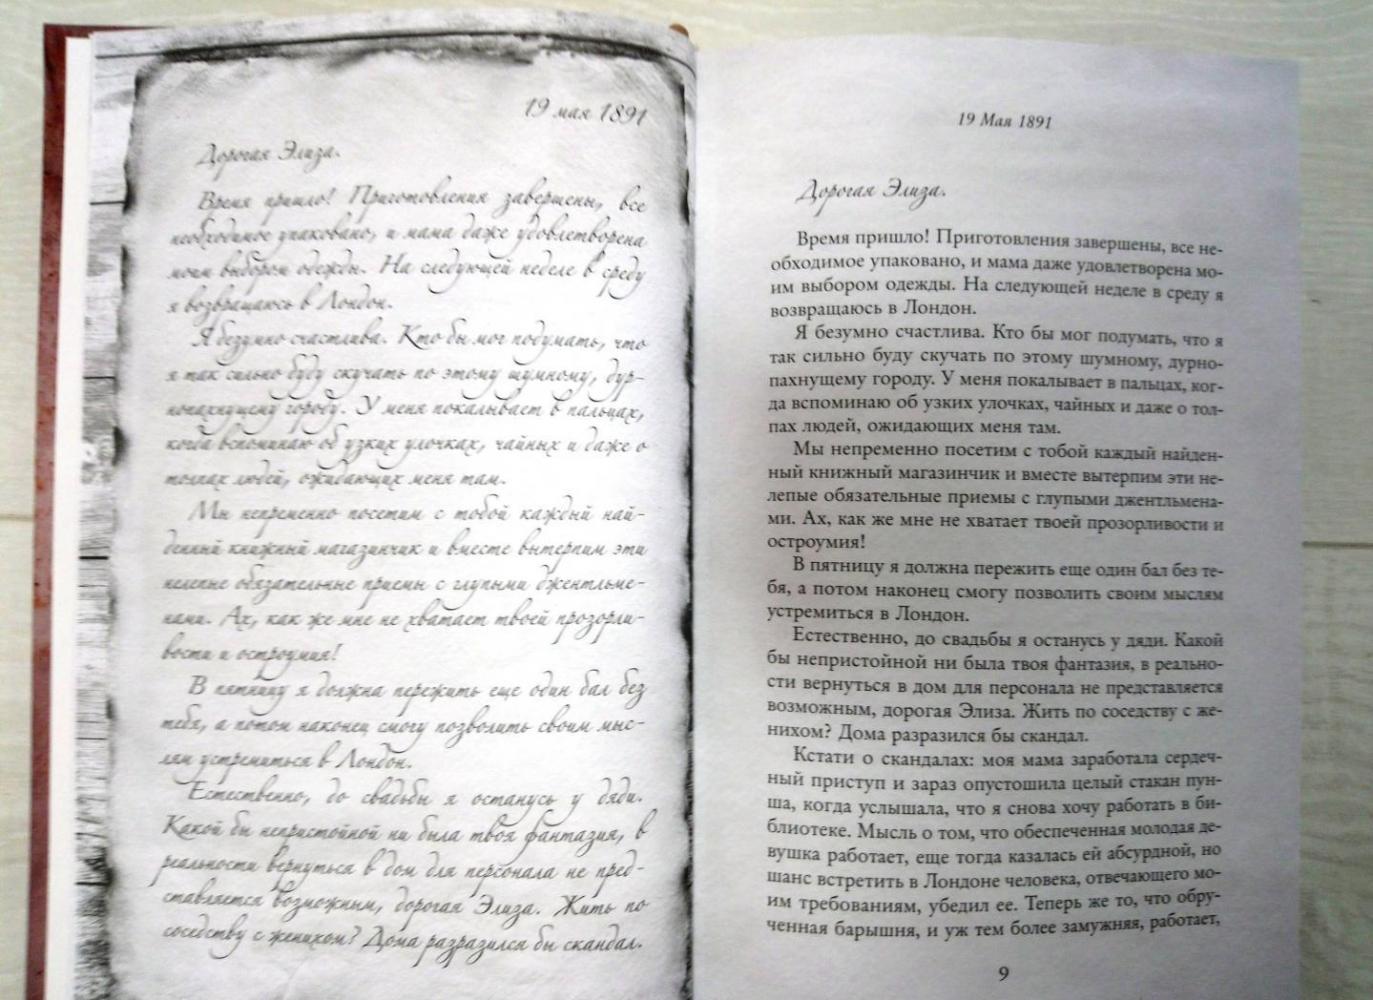 19 мая 1891
Дорогая Элиза.
Время пришло! Приготовления завершены, все
необходимое упаковано, и мама даже удовлетворена
моим выбором одежды. На следующей неделе в среду
я возвращаюсь в Лондон.
Я безумно счастлива. Кто бы мог подумать, что
я так сильно буду скучать по этому шумному, дур-
нопахнущему городу. У меня покалывает в пальцах,
когда вспоминаю об узких улочках, чайных и даже о
толпах людей, ожидающих меня там.
Мы непременно посетим с тобой каждый най-
денный книжный магазинчик и вместе вытерпим эти
нелепые обязательные приемы с глупыми джентльме-
нами. Ах, как же мне не хватает твоей прозорли-
вости и остроумия!
В пятницу я должна пережить еще один бал без
тебя, а потом наконец смогу позволить своим мыс-
лям устремиться в Лондон.
Естественно, до свадьбы я останусь у дяди.
Какой бы непристойной ни была твоя фантазия, в
реальности вернуться в дом для персонала не пред-
ставляется возможным, дорогая Элиза. Жить по
соседству с женихом? Дома разразился бы скандал.
19 Мая 1891
Дорогая Элиза.
Время пришло! Приготовления завершены, все не-
обходимое упаковано, и мама даже удовлетворена мо-
им выбором одежды. На следующей неделе в среду я
возвращаюсь в Лондон.
Я безумно счастлива. Кто бы мог подумать, что я
так сильно буду скучать по этому шумному, дурно-
пахнущему городу. У меня покалывает в пальцах, ког-
да вспоминаю об узких улочках, чайных и даже о тол-
пах людей, ожидающих меня там.
Мы непременно посетим с тобой каждый найден-
ный книжный магазинчик и вместе вытерпим эти не-
лепые обязательные приемы с глупыми джентльмена-
ми. Ах, как же мне не хватает твоей прозорливости и
остроумия!
В пятницу я должна пережить еще один бал без те-
бя, а потом наконец смогу позволить своим мыслям
устремиться в Лондон.
Естественно, до свадьбы я останусь у дяди. Какой
бы непристойной ни была твоя фантазия, в реально-
сти вернуться в дом для персонала не представляется
возможным, дорогая Элиза. Жить по соседству с же-
нихом? Дома разразился бы скандал.
Кстати о скандалах: моя мама заработала сердеч-
ный приступ и зараз опустошила целый стакан пун-
ша, когда услышала, что я снова хочу работать в би-
блиотеке. Мысль о том, что обеспеченная молодая де-
вушка работает, еще тогда казалась ей абсурдной, но
шанс встретить в Лондоне человека, отвечающего мо-
им требованиям, убедил ее. Теперь же то, что обру-
ченная барышня, и уж тем более замужняя, работает,
9